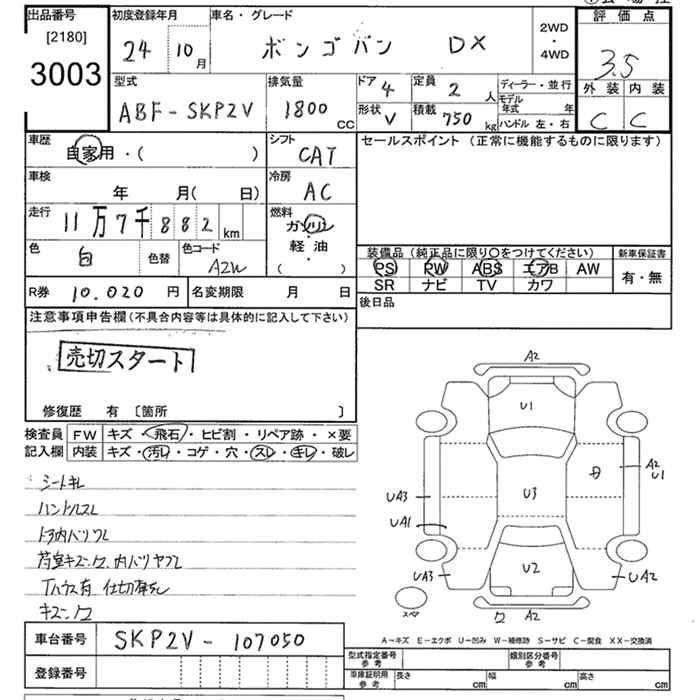 出品番号
[2180]
3003
初度登録年月
24 10 月
車名・グレード
ボンゴバン DX
2WD
・
4WD
評価点
3.5
外装 内装
C C
型式
ABF-SKP2V
排気量
1800 CC
ドア 4
形状 V
定員 2 人
積載 750 kg
ディーラー・並行
モデル年式 年
ハンドル 左・右
車歴
自家用・( )
シフト
CAT
セールスポイント(正常に機能するものに限ります)
車検
年 月( 日)
冷房
AC
走行
11万7千882 km
燃料
ガソリン
・
軽油
( )
色
白
色替
色コード
A2W
装備品(純正品に限り○をつけてください)
PS PW ABS エアB AW
SR ナビ TV カワ
新車保証書
有・無
R券 10.020 円
名変期限 月 日
後日品
注意事項申告欄(不具合内容等は具体的に記入して下さい)
売切スタート
修復歴 有 〔箇所 〕
検査員記入欄
FW キズ・飛石・ヒビ割・リペア跡・×要
内装 キズ・汚レ・コゲ・穴・スレ・キレ・破レ
シートキレ
ハンドルスレ
荷室キズ
A2
U1
U3
A2
U1
UA3
UA1
U2
UA3
UA2
スペア
A2
A-キズ E-エクボ U-凹み W-補修跡 S-サビ C-腐食 XX-交換済
車台番号 SKP2V-107050
登録番号
型式指定番号 参考
類別区分番号 参考
車庫証明用 参考
長さ cm 幅 cm 高さ cm